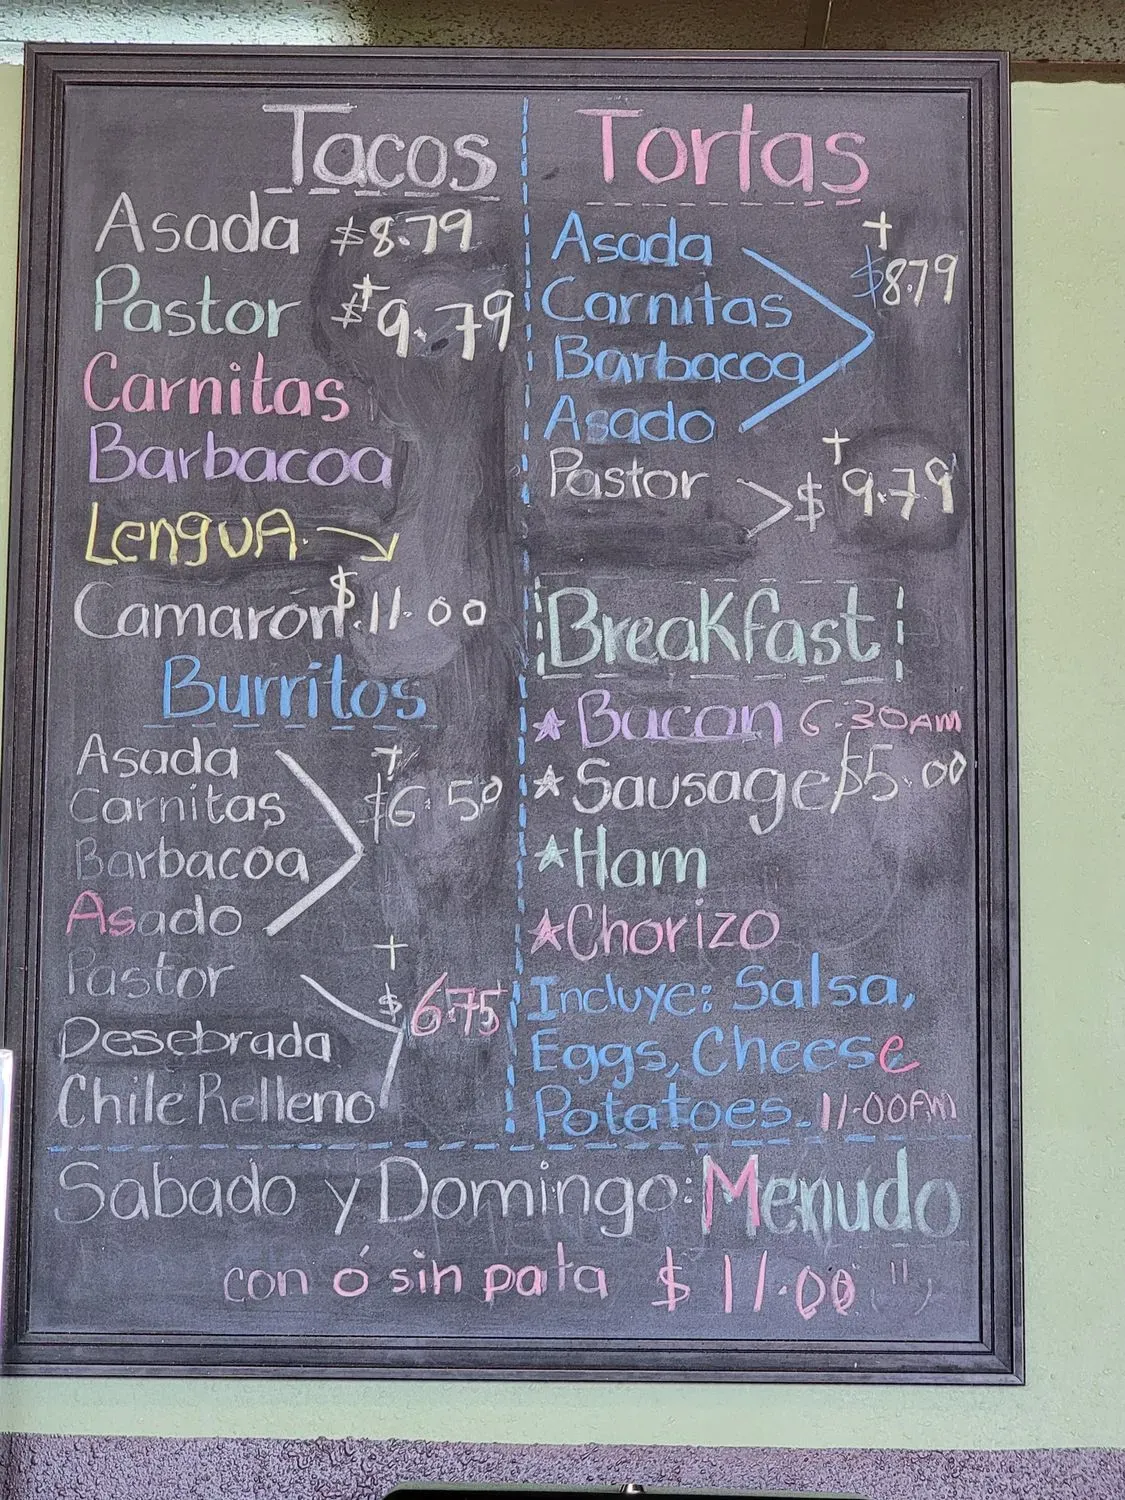 Tacos
Asada $8.79
Pastor $+9.79
Carnitas
Barbacoa
LenguA
Camarón $11.00
Burritos
Asada +
Carnitas $6.50
Barbacoa
Asado
Pastor +
$6.75
Desebrada
Chile Relleno
Tortas
Asada +
$8.79
Carnitas
Barbacoa
Asado
Pastor $+9.79
Breakfast
Bacon 6:30AM
Sausage $5.00
Ham
Chorizo
Incluye: Salsa,
Eggs, Cheese
Potatoes. 11:00AM
Sabado y Domingo: Menudo
con ó sin pata $11.00